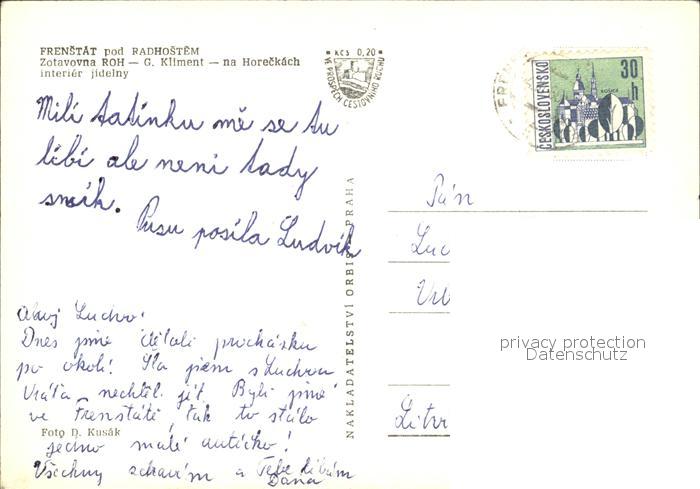 FRENŠTÁT pod RADHOŠTĚM
Zotavovna ROH — G. Kliment — na Horečkách
interiér jídelny
KČS 0,20
VE PROSPĚCH CESTOVNÍHO RUCHU
ČESKOSLOVENSKO
30
h
KOŠICE
Milí tatínku mě se tu
líbí ale neni tady
sníh.
Pusu posíla Ludvík
Pán
Luc
Litvr
NAKLADATELSTVÍ ORBIS PRAHA
privacy protection
Datenschutz
Ahoj
Dnes jsme dělali procházku
po okolí! Šla jsem s
nechtěl jít. Byli jsme
ve Frenštátě, tak to stálo
Foto D. Kusák
jedno malé autíčko!
Všechny zdravím a Tebe líbám
Dana